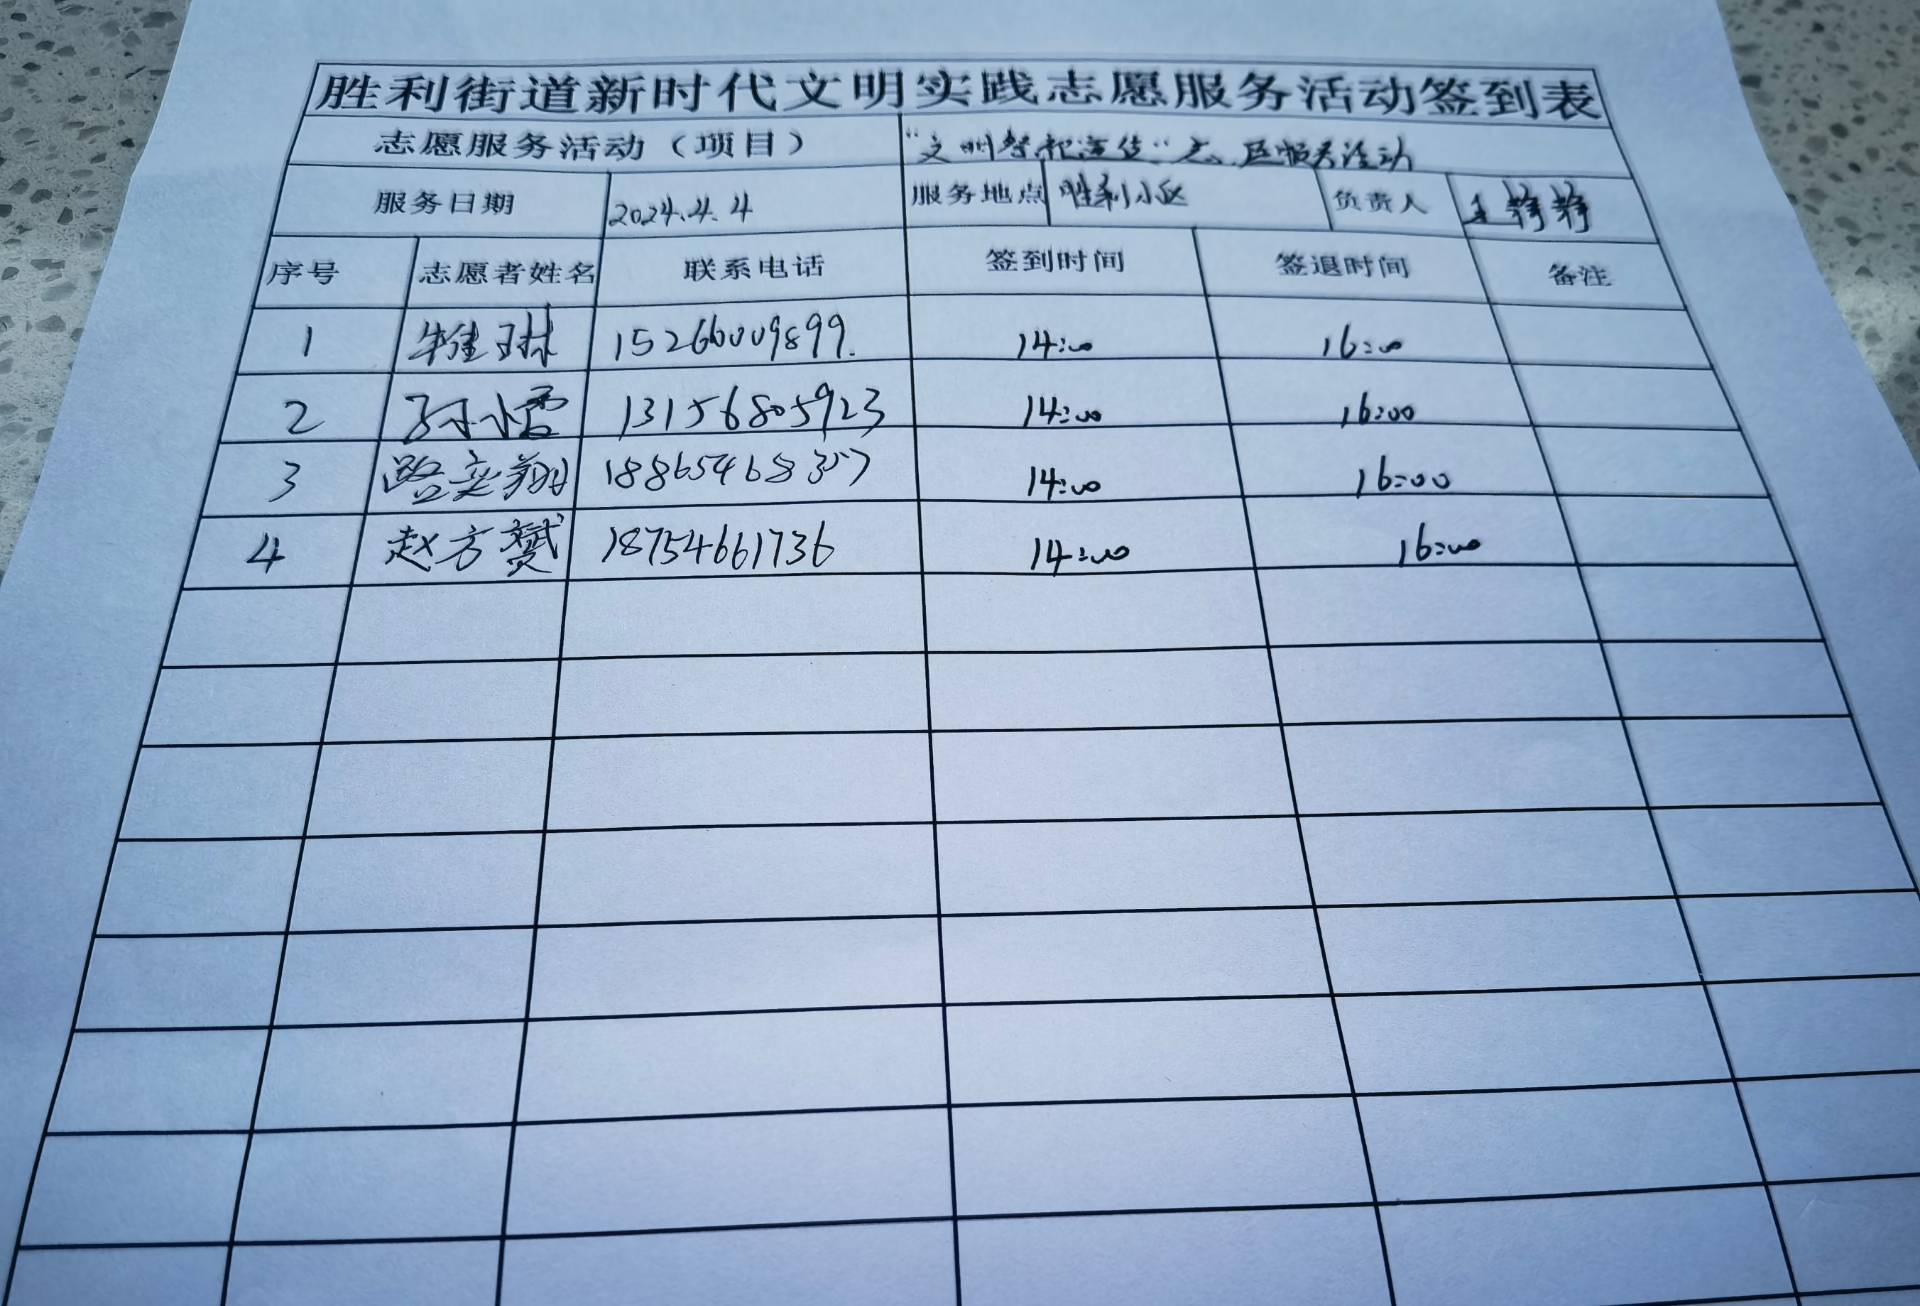 胜利街道新时代文明实践志愿服务活动签到表
志愿服务活动（项目） "文明祭祀宣传" 活动
服务日期 2024.4.4 服务地点 胜利小区 负责人 王静静
序号 志愿者姓名 联系电话 签到时间 签退时间 备注
1 15266009899. 14:00 16:00
2 孙小雪 13156805923 14:00 16:00
3 路奕翔 14:00 16:00
4 赵方赟 18754661736 14:00 16:00